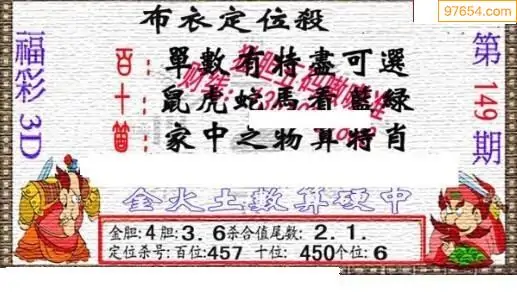 97654.com
布衣定位殺
福彩3D
第149期
百：單數有特盡可選
十：鼠虎蛇馬看籃綠
個：家中之物算特肖
金火土數算硬中
金胆:4胆:3.6杀合值尾数:2.1.
定位杀号:百位:457 十位:450个位:6